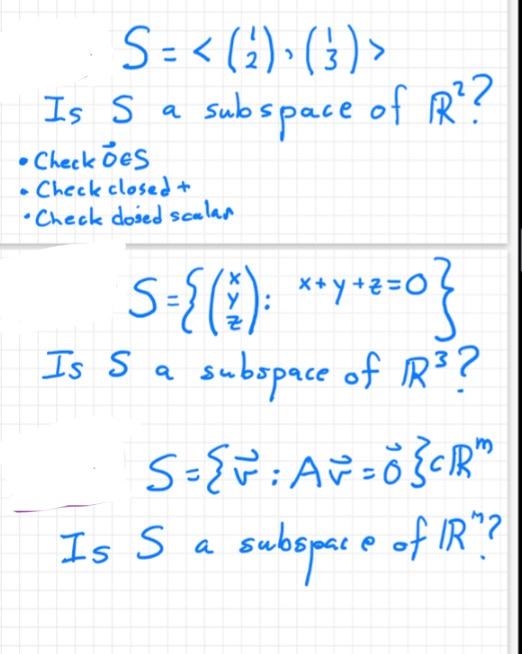 S = < (1 2), (1 3) >
Is S a subspace of ℝ²?
• Check 0⃗ ∈ S
• Check closed +
• Check closed scalar
S = { (x y z) : x + y + z = 0 }
Is S a subspace of ℝ³?
S = { v⃗ : A v⃗ = 0⃗ } ⊂ ℝᵐ
Is S a subspace of ℝᵐ?